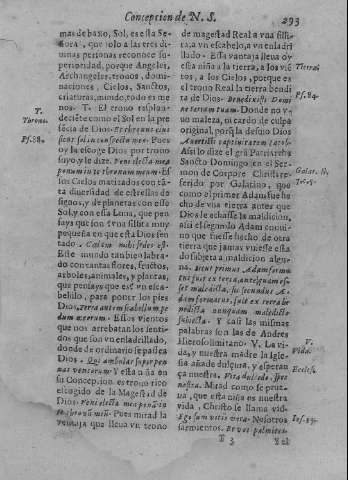 Concepcion de N. S.
293
mas debaxo, Sol, es esta Señora, que solo a las tres divinas
personas reconoce superioridad,
porque Angeles,
Archangeles, tronos, dominaciones,
Cielos, Sanctos,
criaturas, mundo, todo es menos.
T. El trono resplandeciete
como el Sol en la presecia
de Dios. Et thronus eius
sicut sol in conspectu meo. Pues
oy la escoge Dios por trono
suyo, y le dize. Veni electa mea
ponam in te thronum meum. Es
los Cielos matizados con tata
diversidad de estrellas de
signos, y de planetas con esse
Sol, y con essa Luna, que pensays
que son? vna sillita muy
pequeña en que està Dios sentado.
Caelum mihi sedes est.
Este mundo tambien labrado
con tantas flores, fructos,
arboles, animales, y plantas,
que pensays que es? vn escabelillo,
para poner los pies
Dios, terra autem scabellum pedum
meorum. Estos vientos
que nos arrebatan los sentidos
que son vn enladrillado,
donde de ordinario se passea
Dios. Qui ambulas super pennas
ventorum. Y esta niña en
su Concepcion es trono rico
escogido de la Magestad de
Dios. Veni electa mea ponã in
te thronũ meũ. Pues mirad la
ventaja que lleva vn trono
T.
Throno.
Ps. 88.
de magestad Real a vna sillita,
a vn escabelo, a vn enladrillado.
Essa vantaja lleva oy
esta niña a la tierra, a los vietos,
a los Cielos, porque es
el trono Real la tierra bendita
de Dios. Benedixisti Domine
terram tuam. Donde no vuo
maleza, ni cardo de culpa
original, porq la desuio Dios
Avertisti captivitatem Iacob.
Assi lo dize el grã Patriarcha
Sancto Domingo en el Sermon
de Corpore Christi referido
por Galatino, que
como el primer Adam fue hecho
de vna tierra antes que
Dios le echasse la maldicion,
assi el segundo Adam convino
que fuesse hecho de otra
tierra que jamas vuiesse estado
subjeta a maldicion alguna.
Sicut primus Adam formatus
fuit ex terra, antequam esset
maledicta, sic secundus Adam
formatus, fuit ex terra benedicta
nunquam maledicto
subiecta. Y casi las mismas
palabras son las de Andres
Hierosolimitano. V. La vida,
y nuestra madre la Iglesia
añade dulçura, y esperança
nuestra. Vita dulcedo, spes
nostra. Mirad como se prueua,
que esta niña es nuestra
vida, Christo se llama vid
Ego sum vitis vera. Nosotros
sarmientos. Et vos palmites.
Tierra.
Ps. 84.
V.
Vida.
Eccles.
T 3